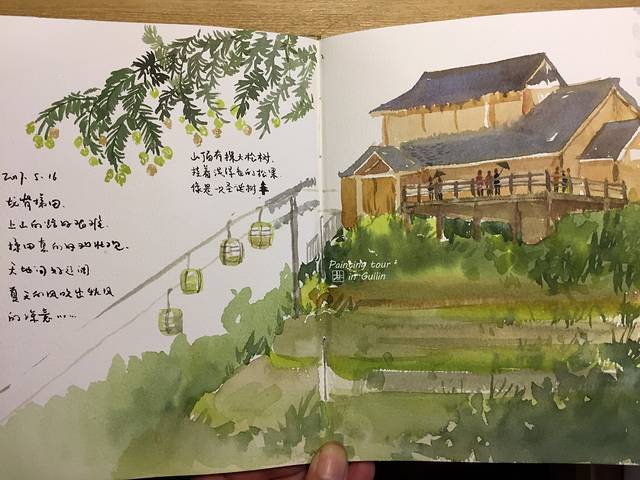 2017. 5. 16
龙脊梯田.
上山的路好艰难.
梯田真的好壮观.
天地间好辽阔
夏天的风吹出秋风
的……
山顶有棵大松树.
挂着淡绿色的松果
像是圣诞树
Painting tour
in Guilin